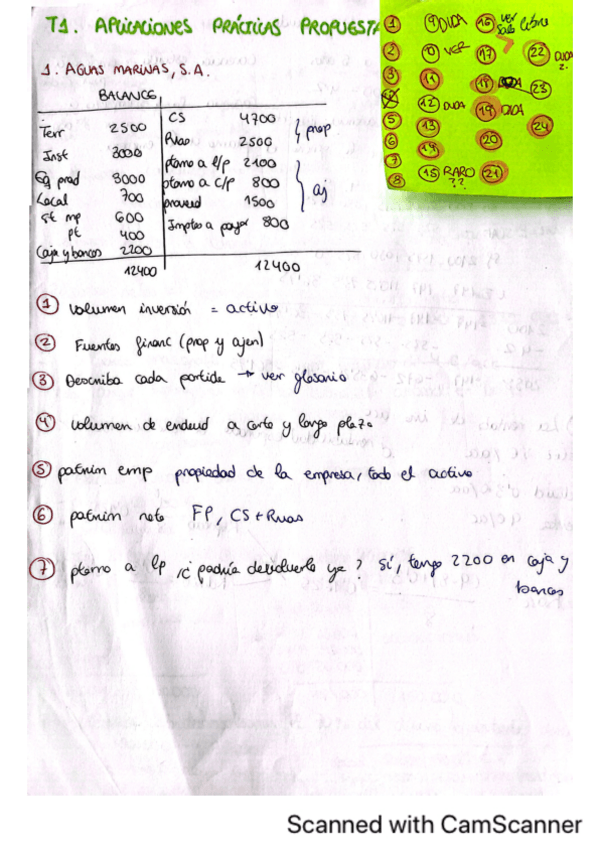 T1. APLICACIONES PRÁCTICAS PROPUESTA
1. AGUAS MARINAS, S.A.
BALANCE
Terr 2500
Inst 3000
Eq prod 3000
Local 700
st mp 600
pt 400
Caja y bancos 2200
12400
CS 4700
Rvas 2500
ptamo a l/p 2100
ptamo a c/p 800
proveed 1500
Imptos a pagar 800
12400
prop.
aj
① Volumen inversión = activo
② Fuentes financ (prop y ajen)
③ Describa cada partida → ver glosario
④ Volumen de endeud a corto y largo plazo
⑤ patrim emp propiedad de la empresa, todo el activo
⑥ patrim neto FP, CS + Rvas
⑦ ptamo a lp ¿podría devolverlo ya? Sí, tengo 2200 en caja y
bancos
1
2
3
5
6
7
8
9 DUDA
10 VER
11
12 DUDA
13
14
15 RARO ??
16 ver
17 ?
18 DUDA
19 DUDA
20
21
22 DUDA
23
24
Scanned with CamScanner